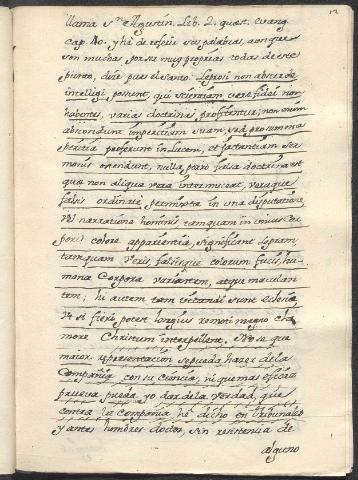 12
llama S.n Agustin. Lib. 2. quæst. evang.
cap. 40. y hé de referir sus palabras, aunque
son muchas, por ser muy proprias todas de este
punto, dize pues el santo: Leprosi non absurde
intelligi possunt, qui scientiam veræ fidei non
habentes, varias doctrinas profitentur, non enim
abscondunt imperitiam suam, sed pro summa
peritia proferunt in lucem, et jactantiam ser
monis ostendunt, nulla porro falsa doctrina est
quæ non aliqua vera intermisceat, vera ergo
falsis ordinatè permixta in una disputatione
vel narratione hominis, tamquam in unius cor
poris colore apparentia, significant lepram,
tamquam veris, falsisque colorum fucis, hu-
mana corpora variantem, atque maculan
tem; hi autem tam vitandi sunt eclesiæ,
ut si fieri potest longius remoti magno cla
more Christum interpellent. No se que
maior representacion se pueda hazer de la
Compañia con su ciencia, ni que mas eficaz
prueva pueda yo dar de la verdad, que
contra la compañia hé dicho en Tribunales
y antes hombres doctos, sin resistencia de
alguno